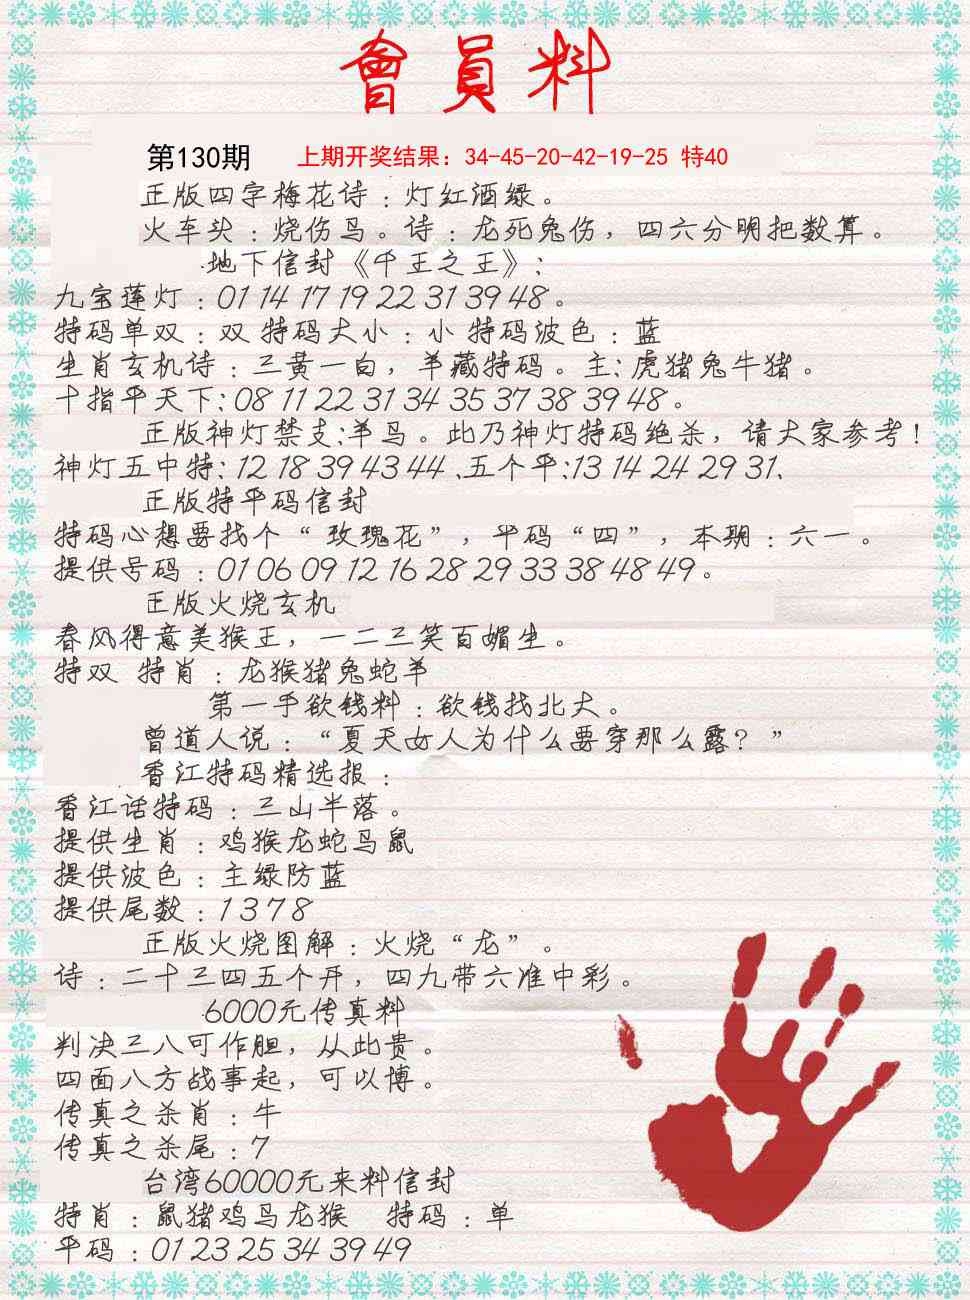 會員料
第130期 上期开奖结果：34-45-20-42-19-25 特40
正版四字梅花诗：灯红酒绿。
火车头：烧伤鸟。诗：龙死兔伤，四六分明把数算。
地下信封《千王之王》：
九宝莲灯：01 14 17 19 22 31 39 48。
特码单双：双 特码大小：小 特码波色：蓝
生肖玄机诗：三黄一白，羊藏特码。主：虎猪兔牛猪。
十指平天下：08 11 22 31 34 35 37 38 39 48。
正版神灯禁支：羊鸟。此乃神灯特码绝杀，请大家参考！
神灯五中特：12 18 39 43 44、五个平：13 14 24 29 31、
正版特平码信封
特码心想要找个“玫瑰花”，平码“四”，本期：六一。
提供号码：01 06 09 12 16 28 29 33 38 48 49。
正版火烧玄机
春风得意美猴王，一二三笑百媚生。
特双 特肖：龙猴猪兔蛇羊
第一手欲钱料：欲钱找北大。
曾道人说：“夏天女人为什么要穿那么露？”
香江特码精选报：
香江话特码：三山半落。
提供生肖：鸡猴龙蛇马鼠
提供波色：主绿防蓝
提供尾数：1 3 7 8
正版火烧图解：火烧“龙”。
诗：二十三四五个开，四九带六准中彩。
6000元传真料
判决三八可作胆，从此贵。
四面八方战事起，可以博。
传真之杀肖：牛
传真之杀尾：7
台湾60000元来料信封
特肖：鼠猪鸡马龙猴 特码：单
平码：01 23 25 34 39 49